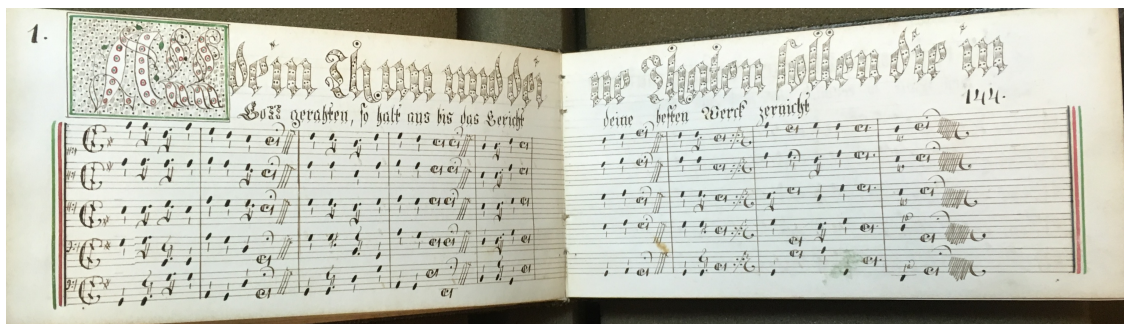 1.
Alle dein Thun und dei ne Thaten sollen dir in
Gott gerahten, so halt aus bis das Gericht deine besten Werck zernicht
144.